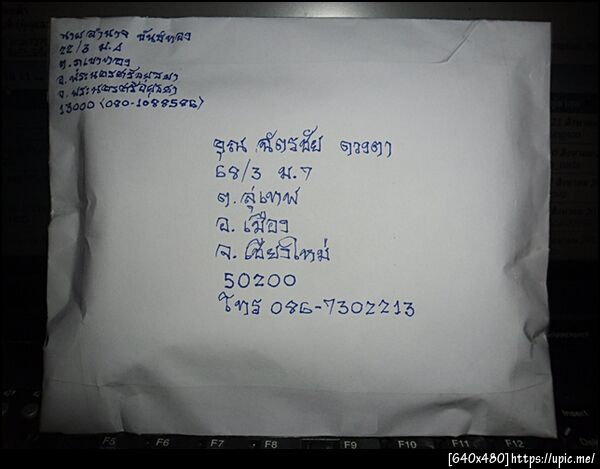 นาย อำนาจ จันทร์ทอง
22/3 ม.4
อ.พระนครศรีอยุธยา
จ.พระนครศรีอยุธยา
13000 (080-1088586)
คุณ ฉัตรชัย ดวงตา
68/3 ม.7
ต.สุเทพ
อ.เมือง
จ.เชียงใหม่
50200
โทร 086-7302213
F5 F6 F7 F8 F9 F10 F11 F12
Insert
[640x480]https://upic.me/